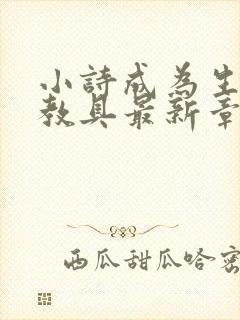 小詩成為生
教具最新章
西瓜甜瓜哈密